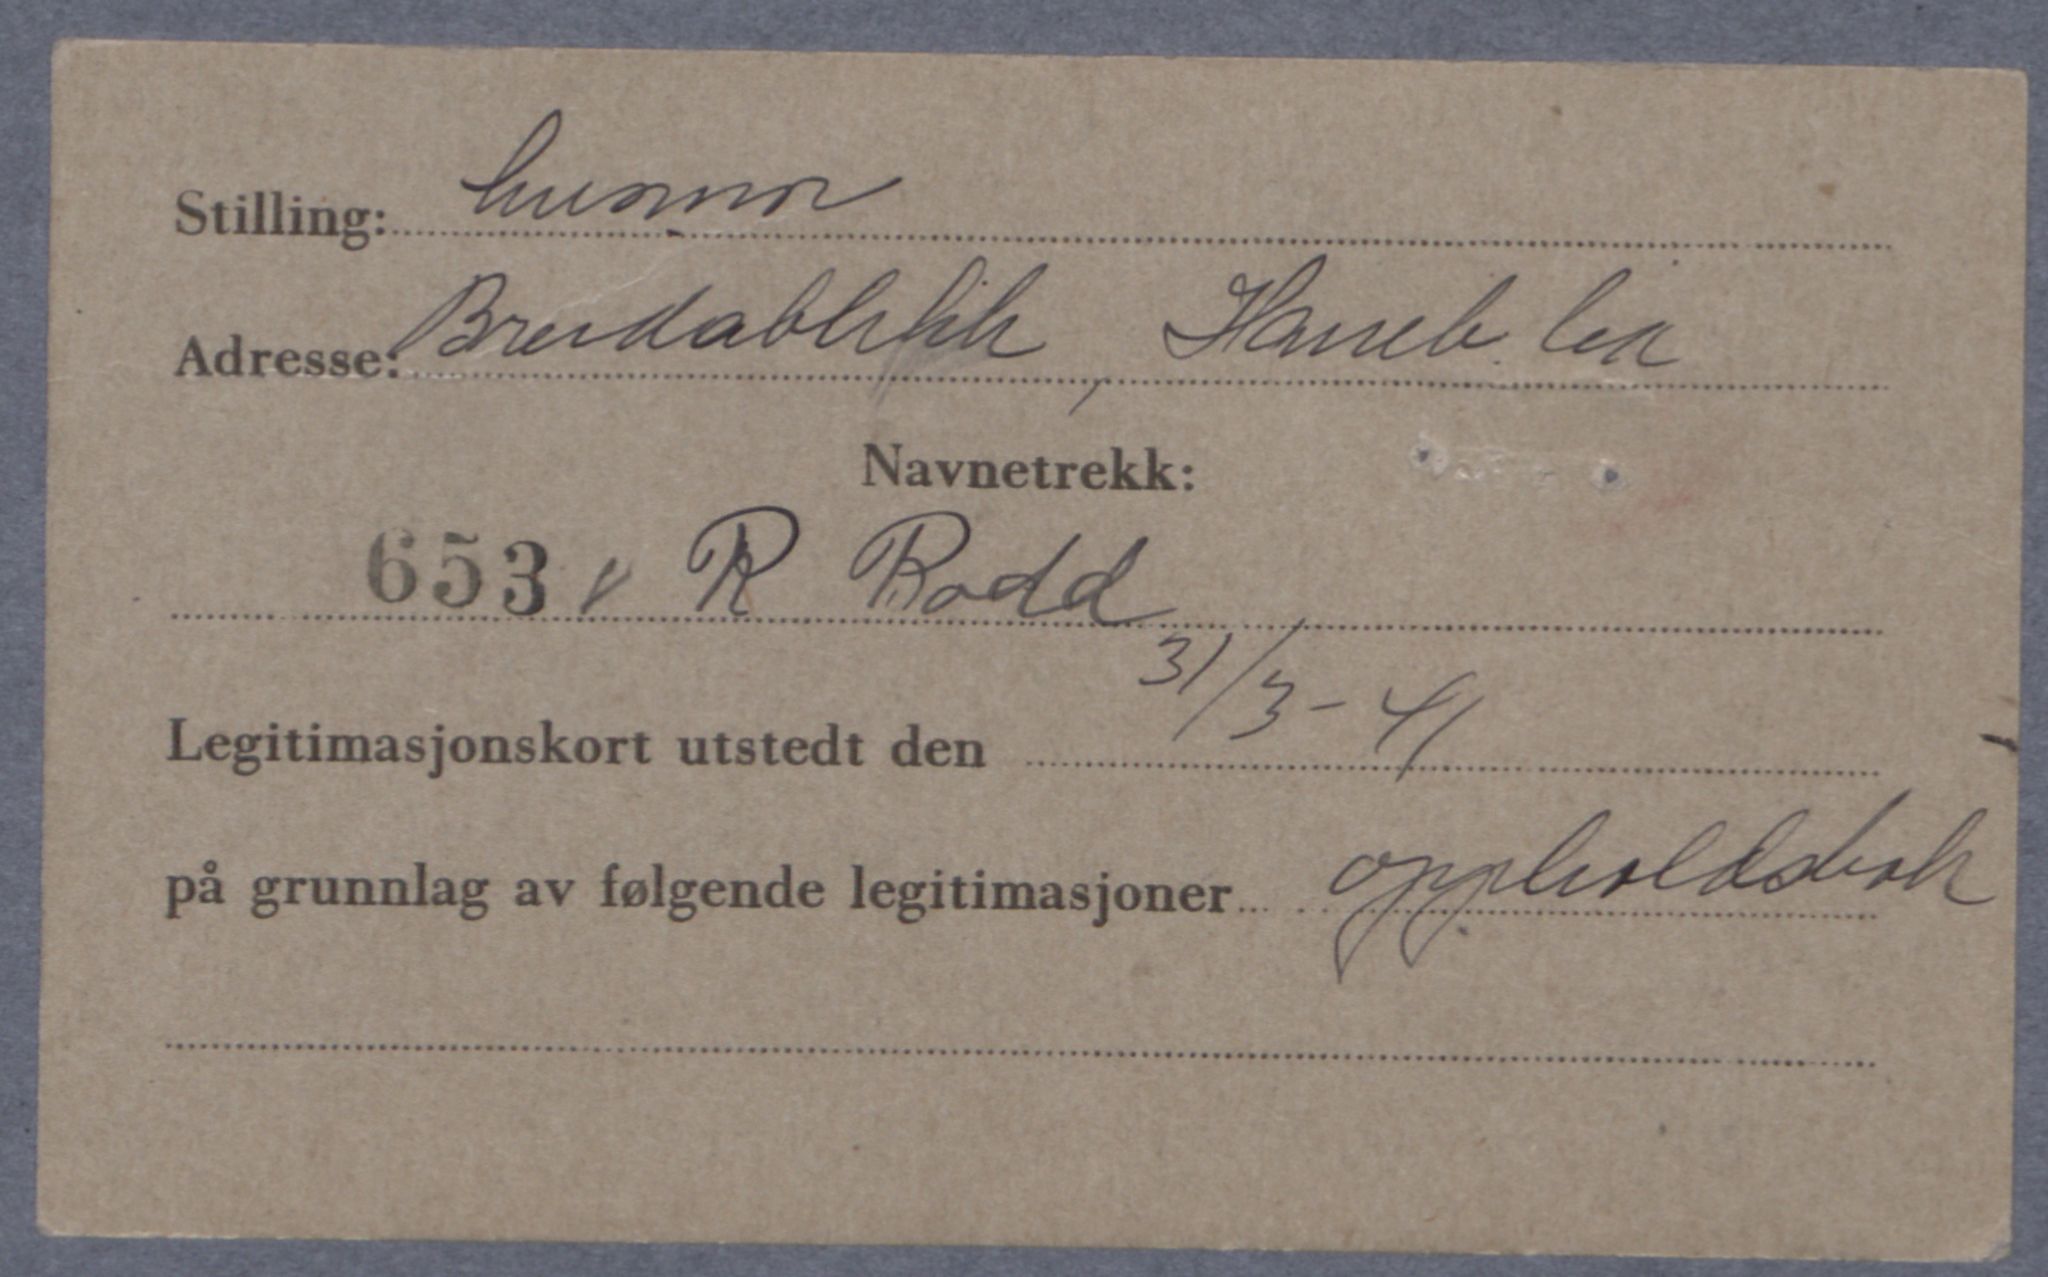 Stilling: husmor
Adresse: Breidablikk, Haneb. lia
Navnetrekk:
653 R Rodd
Legitimasjonskort utstedt den 31/3-41
på grunnlag av følgende legitimasjoner oppholdsbok